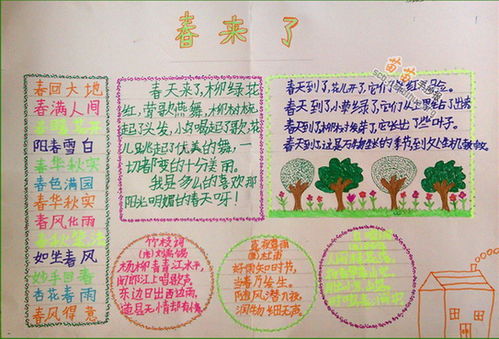 春来了
春回大地
春满人间
阳春白雪
春华秋实
春色满园
春华秋实
春风化雨
如坐春风
妙手回春
杏花春雨
春风得意
春天来了,柳绿花
红,莺歌燕舞,柳树梳
起了头发,小鸟唱起了歌,花
儿跳起了优美的舞,一
切都变的十分美丽。
我是多么的喜欢那
阳光明媚的春天呀!
春天到了,花儿开了,它们
春天到了小草绿了,它们从土里钻了出来
春天到了柳树发芽了,它长出了些叶子。
春天到了这是万物生长的季节
竹枝词
杨柳青青江水平,
闻郎江上唱歌声。
东边日出西边雨,
道是无情却有情
春夜喜雨
杜甫
好雨知时节,
当春乃发生。
随风潜入夜,
润物细无声